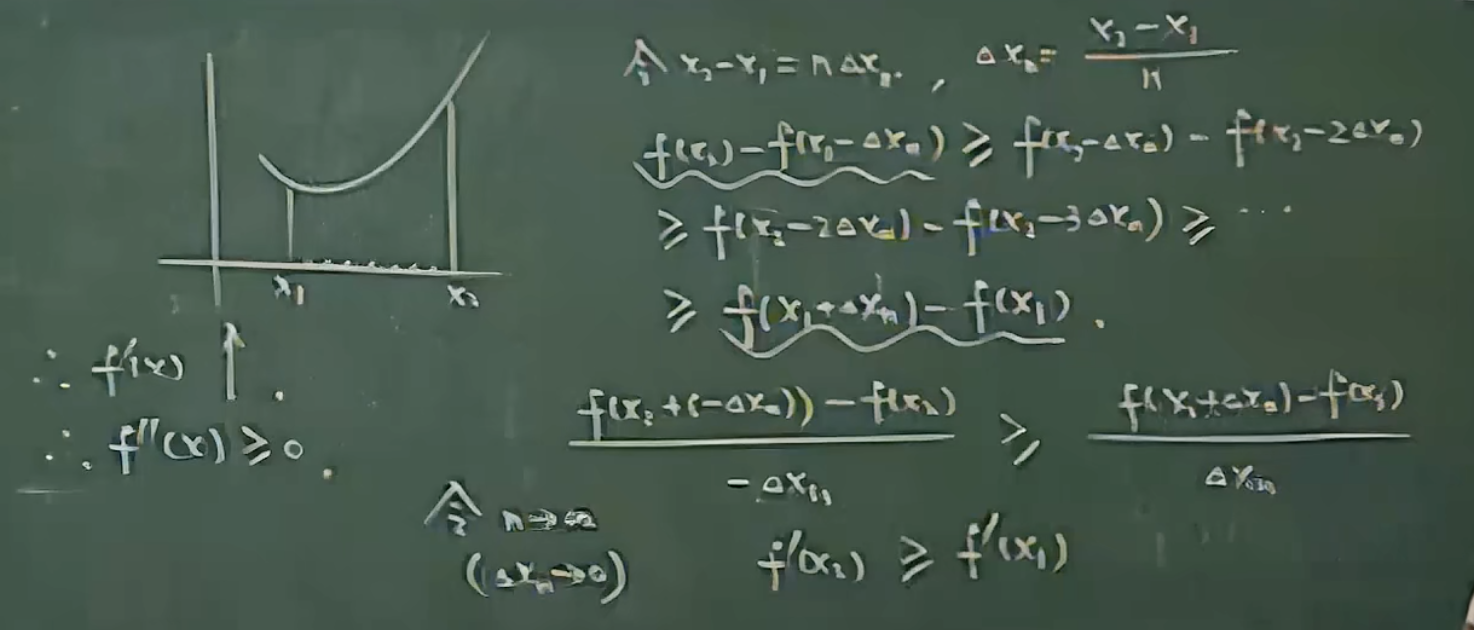 x₁ x₂
令 x₂-x₁=nΔxₙ, Δxₙ= (x₂-x₁)/n
f(x₂)-f(x₂-Δxₙ) ≥ f(x₂-Δxₙ)-f(x₂-2Δxₙ)
≥ f(x₂-2Δxₙ)-f(x₂-3Δxₙ) ≥ ···
≥ f(x₁+Δxₙ)-f(x₁).
(f(x₂+(-Δxₙ))-f(x₂))/(-Δxₙ) ≥ (f(x₁+Δxₙ)-f(x₁))/(Δxₙ)
令 n→∞
(Δxₙ→0) f'(x₂) ≥ f'(x₁)
∴ f'(x) ↑.
∴ f''(x) ≥ 0.